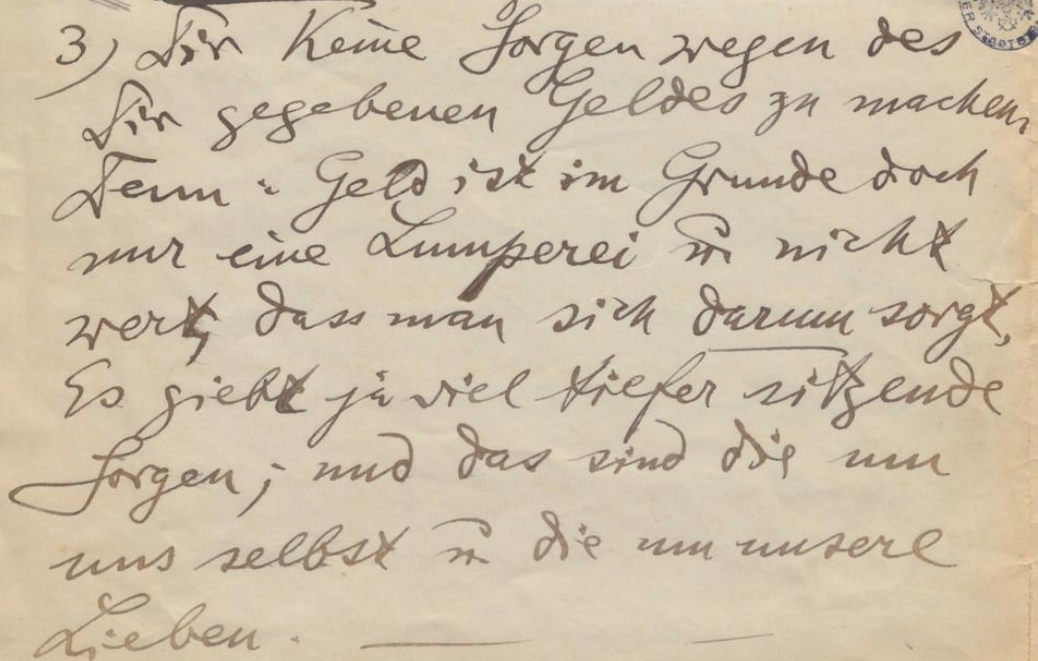 3) Dir Keine Sorgen wegen des
Dir gegebenen Geldes zu machen,
Denn - Geld ist im Grunde doch
nur eine Lumperei u nicht
wert, dass man sich darum sorgt,
Es giebt ja viel tiefer sitzende
Sorgen; und das sind die um
uns selbst u die um unsere
Lieben. —